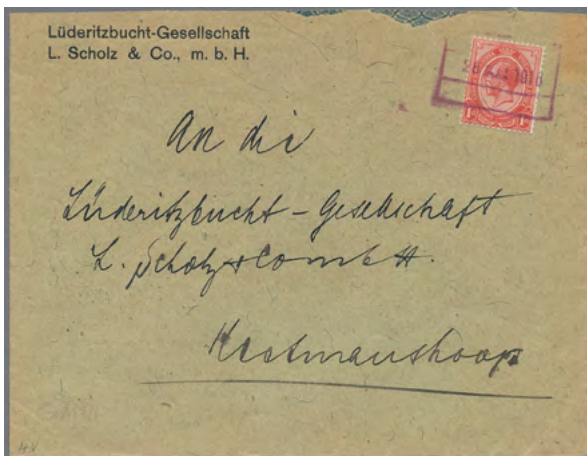 Lüderitzbucht-Gesellschaft
L. Scholz & Co., m. b. H.
1918
1d 1d
An die
Lüderitzbucht - Gesellschaft
L. Scholz & Co mbH.
Keetmanshoop